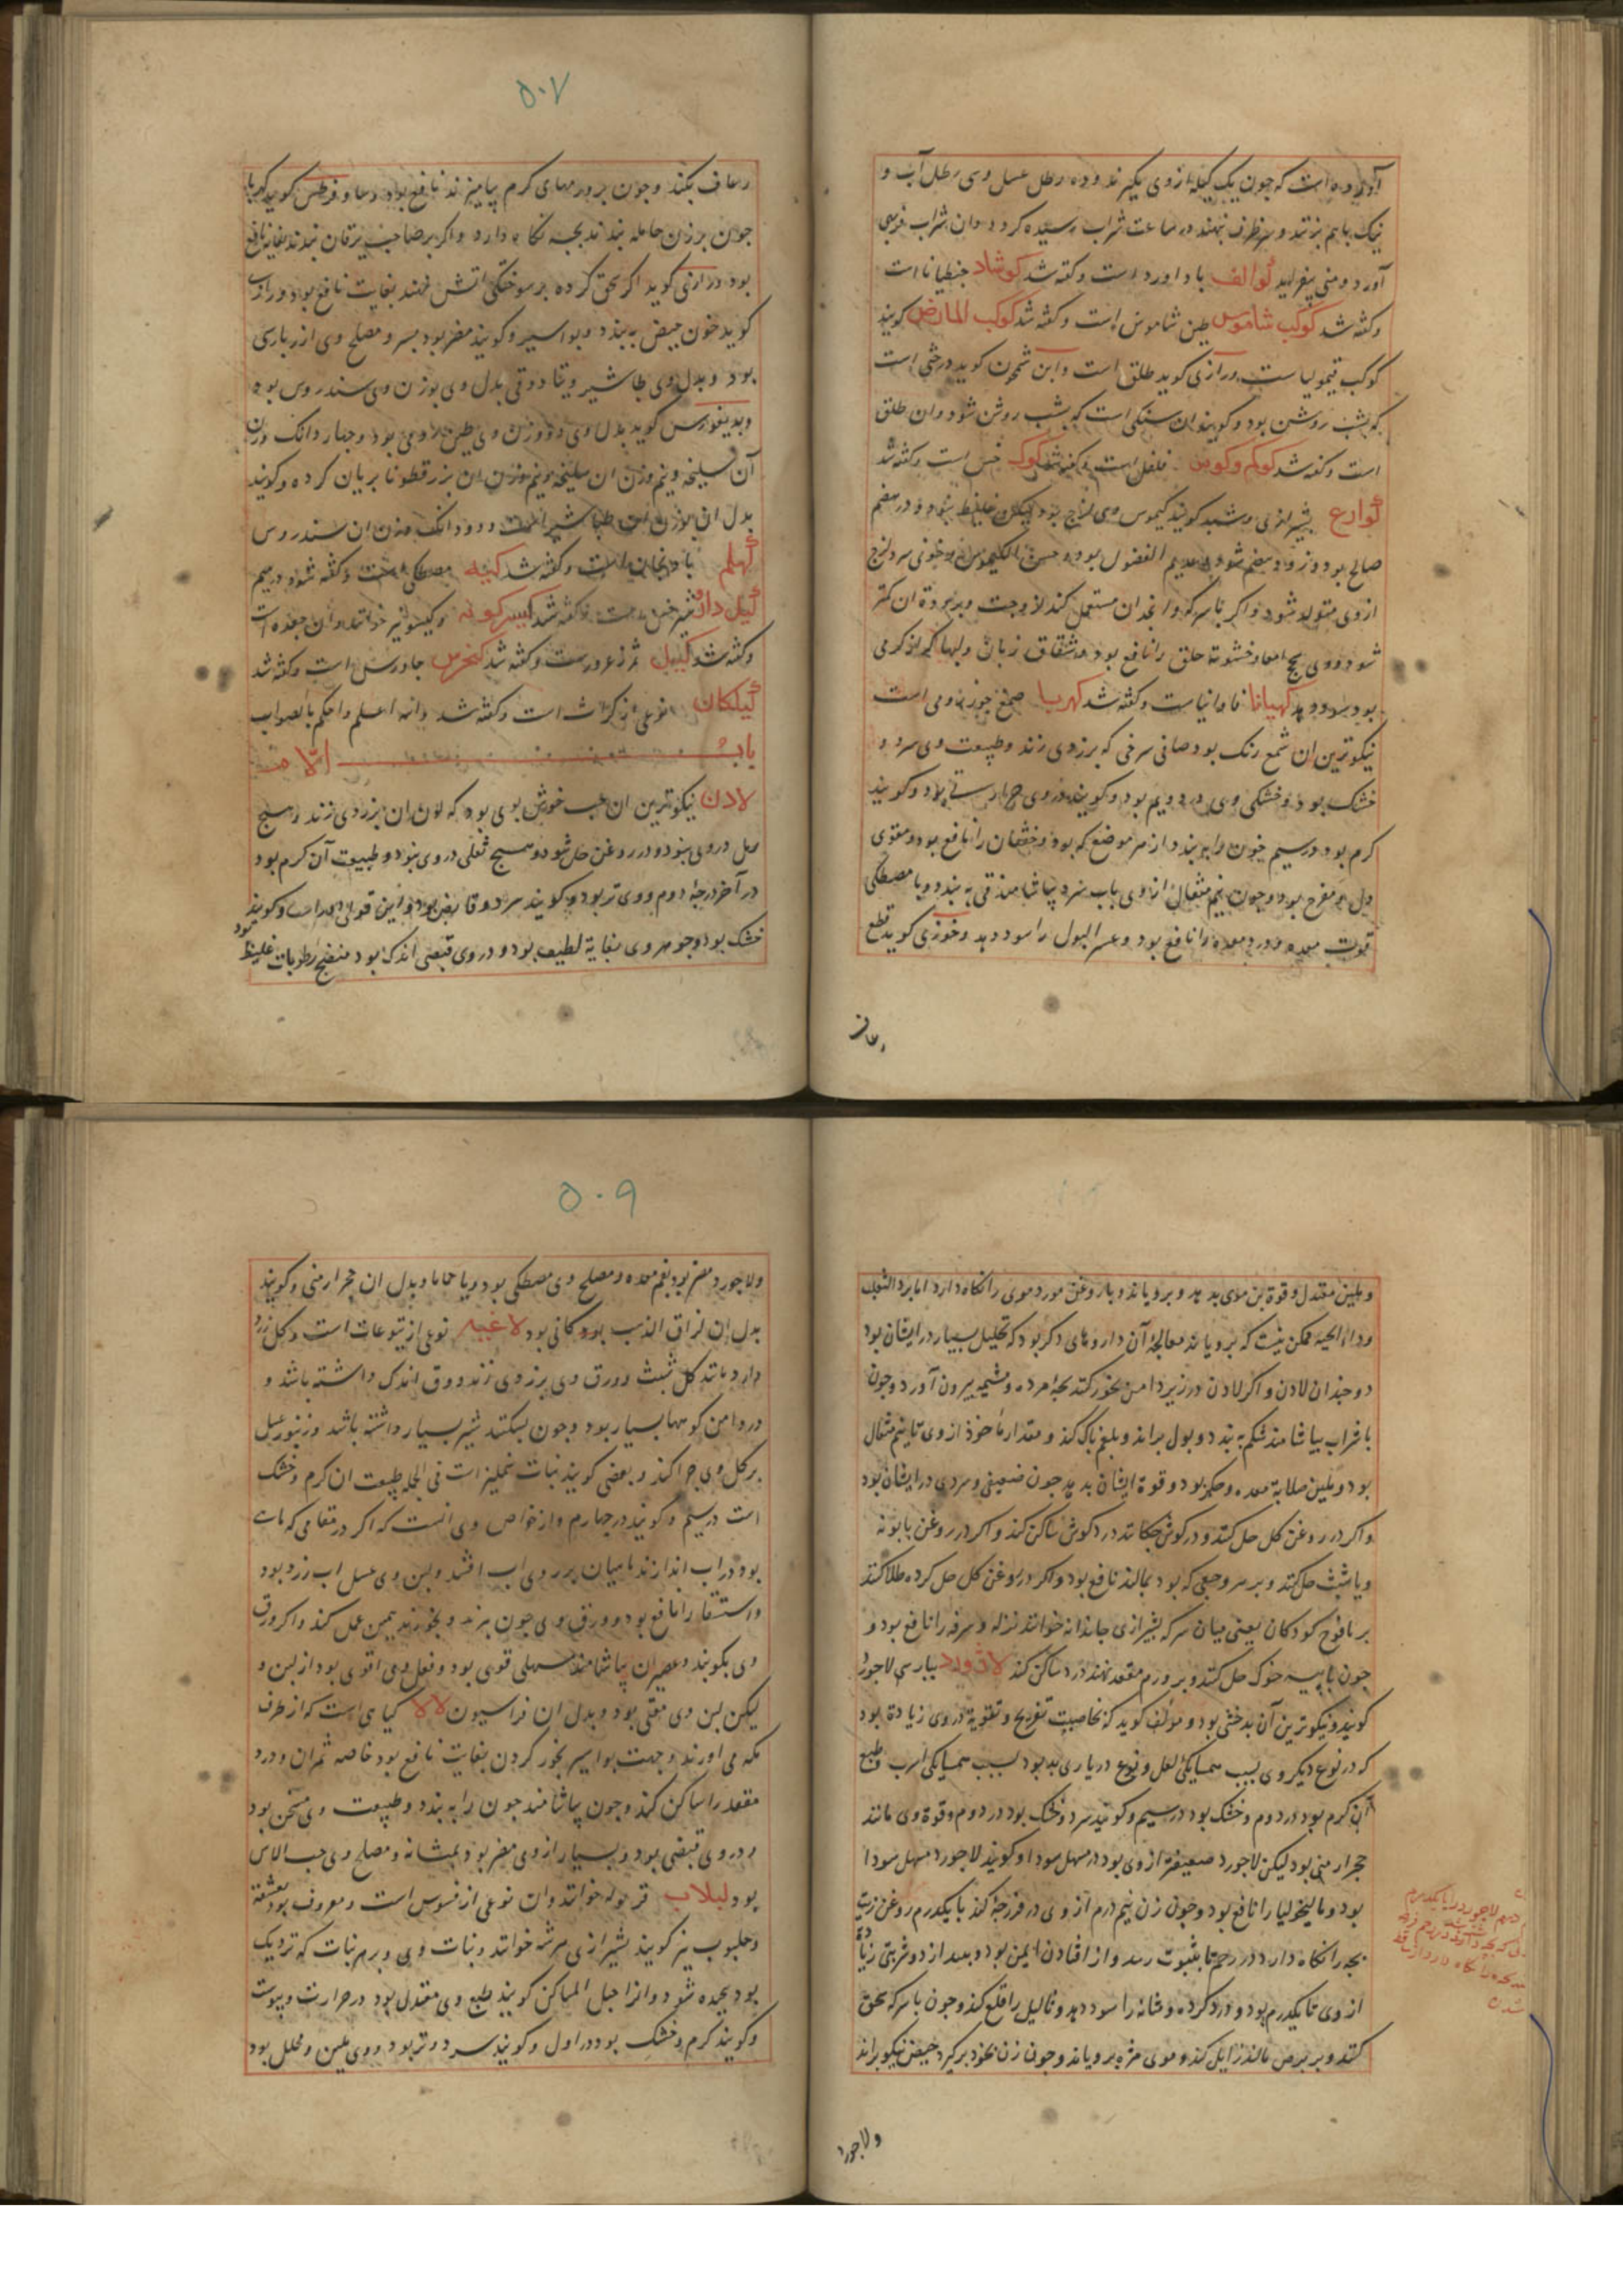 آورده است که چون یک کیله ازوی بگیرند و ده رطل عسل و سی رطل آب و
نیک باهم بزنند و در ظرف نهند در ساعت شراب رسیده کردد و ان شراب فربهی
آورد و منی بیفزاید کوالف باداورد است و کفته شد کوشاد جنطیانا است
و کفته شد کوکب شاموس طین شاموس است و کفته شد کوکب المارض کویند
کوکب قیمولیا ست و رازی کوید طلق است و ابن سمجون کوید درختی است
که بشب روشن بود و کویند ان سنکی است که بشب روشن شود و ان طلق
است و کفته شد کوکم و کوبن فلفل است و کفته شد کوک خس است و کفته شد
کوارع
صالح بود و زود هضم شود و عدیم الفضول بود و حسن الکیموس بود و خونی سرد لزج
ازوی متولد شود و اکر با سرکه و انجدان مستعمل کند لزوجت و برودة ان کمتر
شود و وی سحج امعا و خشونة حلق را نافع بود و شقاق زبان و لبها که از کرمی
بود سود دهد کهیانا فاوانیا ست و کفته شد کهربا صمغ جوز رومی است
نیکوترین ان شمع رنک بود صافی سرخی که بزردی زند و طبیعت وی سرد و
خشک بود و خشکی وی در دویم بود و کویند در وی حرارتی بود و کویند
کرم بود در سیم خون را ببندد از هر موضع که بود و خفقان را نافع بود و مقوی
دل و مفرح بود و چون نیم مثقال ازوی باب سرد بیاشامند قی به بندد و با مصطکی
قوت معده دهد و درد معده را نافع بود و عسر البول را سود دهد و خوزی کوید قطع
رعاف
۵۰۷
رعاف بکند و چون بر ورمهای کرم بیامیزند نافع بود
چون بر زن حامله بندند بچه نکاه دارد و اکر بر صاحب یرقان بندند بغایة نافع
بود و رازی کوید اکر سحق کرده بر سوختکی اتش نهند بغایت نافع بود و رازی
کوید خون حیض به بندد و بواسیر و کویند مضر بود بسر و مصلح وی
بود و بدل وی طباشیر و بدل وی بوزن وی سندروس بود
و بدیغورس کوید بدل وی دو وزن وی طین ارمنی بود و چهار دانک وزن
آن سلیخه و نیم وزن ان بزر قطونا بریان کرده و کویند
بدل ان بوزن ان طباشیر است و دو دانک وزن ان سندروس
کهلم بادنجان است و کفته شد کیه مصطکی است و کفته شود در میم
کیل دارو
و کفته شد کییل ثمر زعرور ست و کفته شد کنجرس جاورس است و کفته شد
کیلکان نوعی از کراث است و کفته شد والله اعلم و احکم بالصواب
باب اللام
لادن نیکوترین ان عنبر خوش بوی بود که لون ان بزردی زند و هیچ
رمل در وی نبود و در روغن حل شود و هیچ ثفلی در وی نبود و طبیعت آن کرم بود
در آخر درجه دوم و وی تر بود و کویند سرد و قابض بود و این قول
خشک بود و جوهر وی بغایة لطیف بود و در وی قبضی اندک بود منضج رطوبات غلیظ بود
و ملین معتدل و قوة بن موی بدهد و برویاند و با روغن مورد موی را نکاه دارد اما برداء الثعلب
و داء الحیه ممکن نیست که برویاند معالجهٔ آن داروهای دکر بود که تحلیل بسیار در ایشان بود
دو چندان لادن و اکر لادن در زیر دامن بخور کنند بچه مرده و مشیمه بیرون آورد و چون
با شراب بیاشامند شکم به بندد و بول براند و بلغم پاک کند و مقدار ماخوذ از وی تا نیم مثقال
بود و ملین صلابة معده و جکر بود و قوة ایشان بدهد چون ضعیفی و سردی در ایشان بود
و اکر در روغن کل حل کنند و در کوش چکانند درد کوش ساکن کند و اکر در روغن بابونه
و یا شبث حل کنند و بر هر وجعی که بود بمالند نافع بود و اکر در روغن کل حل کرده طلا کنند
بر یافوخ کودکان یعنی میان سر که بشیرازی جاندانه خوانند نزله و سرفه را نافع بود و
چون با پیه خوک حل کنند و بر ورم مقعد نهند درد ساکن کند لاژورد بپارسی لاجورد
کویند و نیکوترین آن بدخشی بود و مولف کوید که خاصیت تفریح و تقویة در وی زیادة بود
که در نوع دیکر وی بسبب همسایکی لعل و نوع دریاری بد بود بسبب همسایکی اسرب و طبع
آن کرم بود در دوم و خشک بود در سیم و کویند سرد و خشک بود در دوم و قوة وی مانند
حجر ارمنی بود لیکن لاجورد ضعیفتر از وی بود در مسهل سودا و کویند لاجورد مسهل سودا
بود و مالیخولیا را نافع بود و چون زن نیم درم از وی در فرزجه کند با یکدرم روغن زیت
بچه را نکاه دارد در رحم تا بثبوت رسد و از افتادن ایمن بود و بعد از دو شربتی زیاده
از وی تا یکدرم بود و درد کرده و مثانه را سود دهد و ثالیل را قلع کند و چون با سرکه سحق
کنند و بر برص مالند زایل کند و موی مژه برویاند و چون زن بخود برکیرد حیض نیکو براند
ولاجورد
۵۰۹
ولاجورد مضر بود بفم معده و مصلح وی مصطکی بود و یا حاما و بدل ان حجر ارمنی و کویند
بدل ان لزاق الذهب بود کانی بود لاعیه نوعی از یتوعات است و کل زرد
دارد مانند کل شبث و ورق وی بزردی زند و ورق اندک داشته باشد و
در دامن کوهها بسیار بود و چون بشکنند شیر بسیار داشته باشد و زنبور عسل
بر کل وی چرا کند و بعضی کویند نبات شملیز است فی الجمله طبیعت ان کرم و خشک
است در سیم و کویند در چهارم و از خواص وی انست که اکر در مقامی که ماست
بود در اب اندازند ماهیان بر روی اب افتند و لبن وی عسل اب زرد بود
و استسقا را نافع بود و ورق وی چون بپزند و بخورند همین عمل کند و اکر ورق
وی بکوبند و عصیر ان بیاشامند مسهلی قوی بود و فعل وی اقوی بود از لبن و
لیکن لبن وی مقی بود و بدل ان فراسیون لالا کیاهی است که از طرف
مکه می اورند و جهت بواسیر بخور کردن بغایت نافع بود خاصه ثمر ان و درد
مقعد را ساکن کند و چون بیاشامند خون را به بندد و طبیعت وی مسخن بود
و در وی قبضی بود و بسیار از وی مضر بود بمثانه و مصلح وی حب الاس
بود لبلاب قریوله خوانند و ان نوعی از قسوس است و معروف بود بعشقه
و حلبوب نیز کویند بشیرازی سرشه خوانند و نبات وی بر هر نبات که نزدیک
بود پیچیده شود و انرا حبل المساکین کویند طبع وی معتدل بود در حرارت و یبوست
و کویند کرم و خشک بود در اول و کویند سرد و تر بود و وی ملین و محلل بود